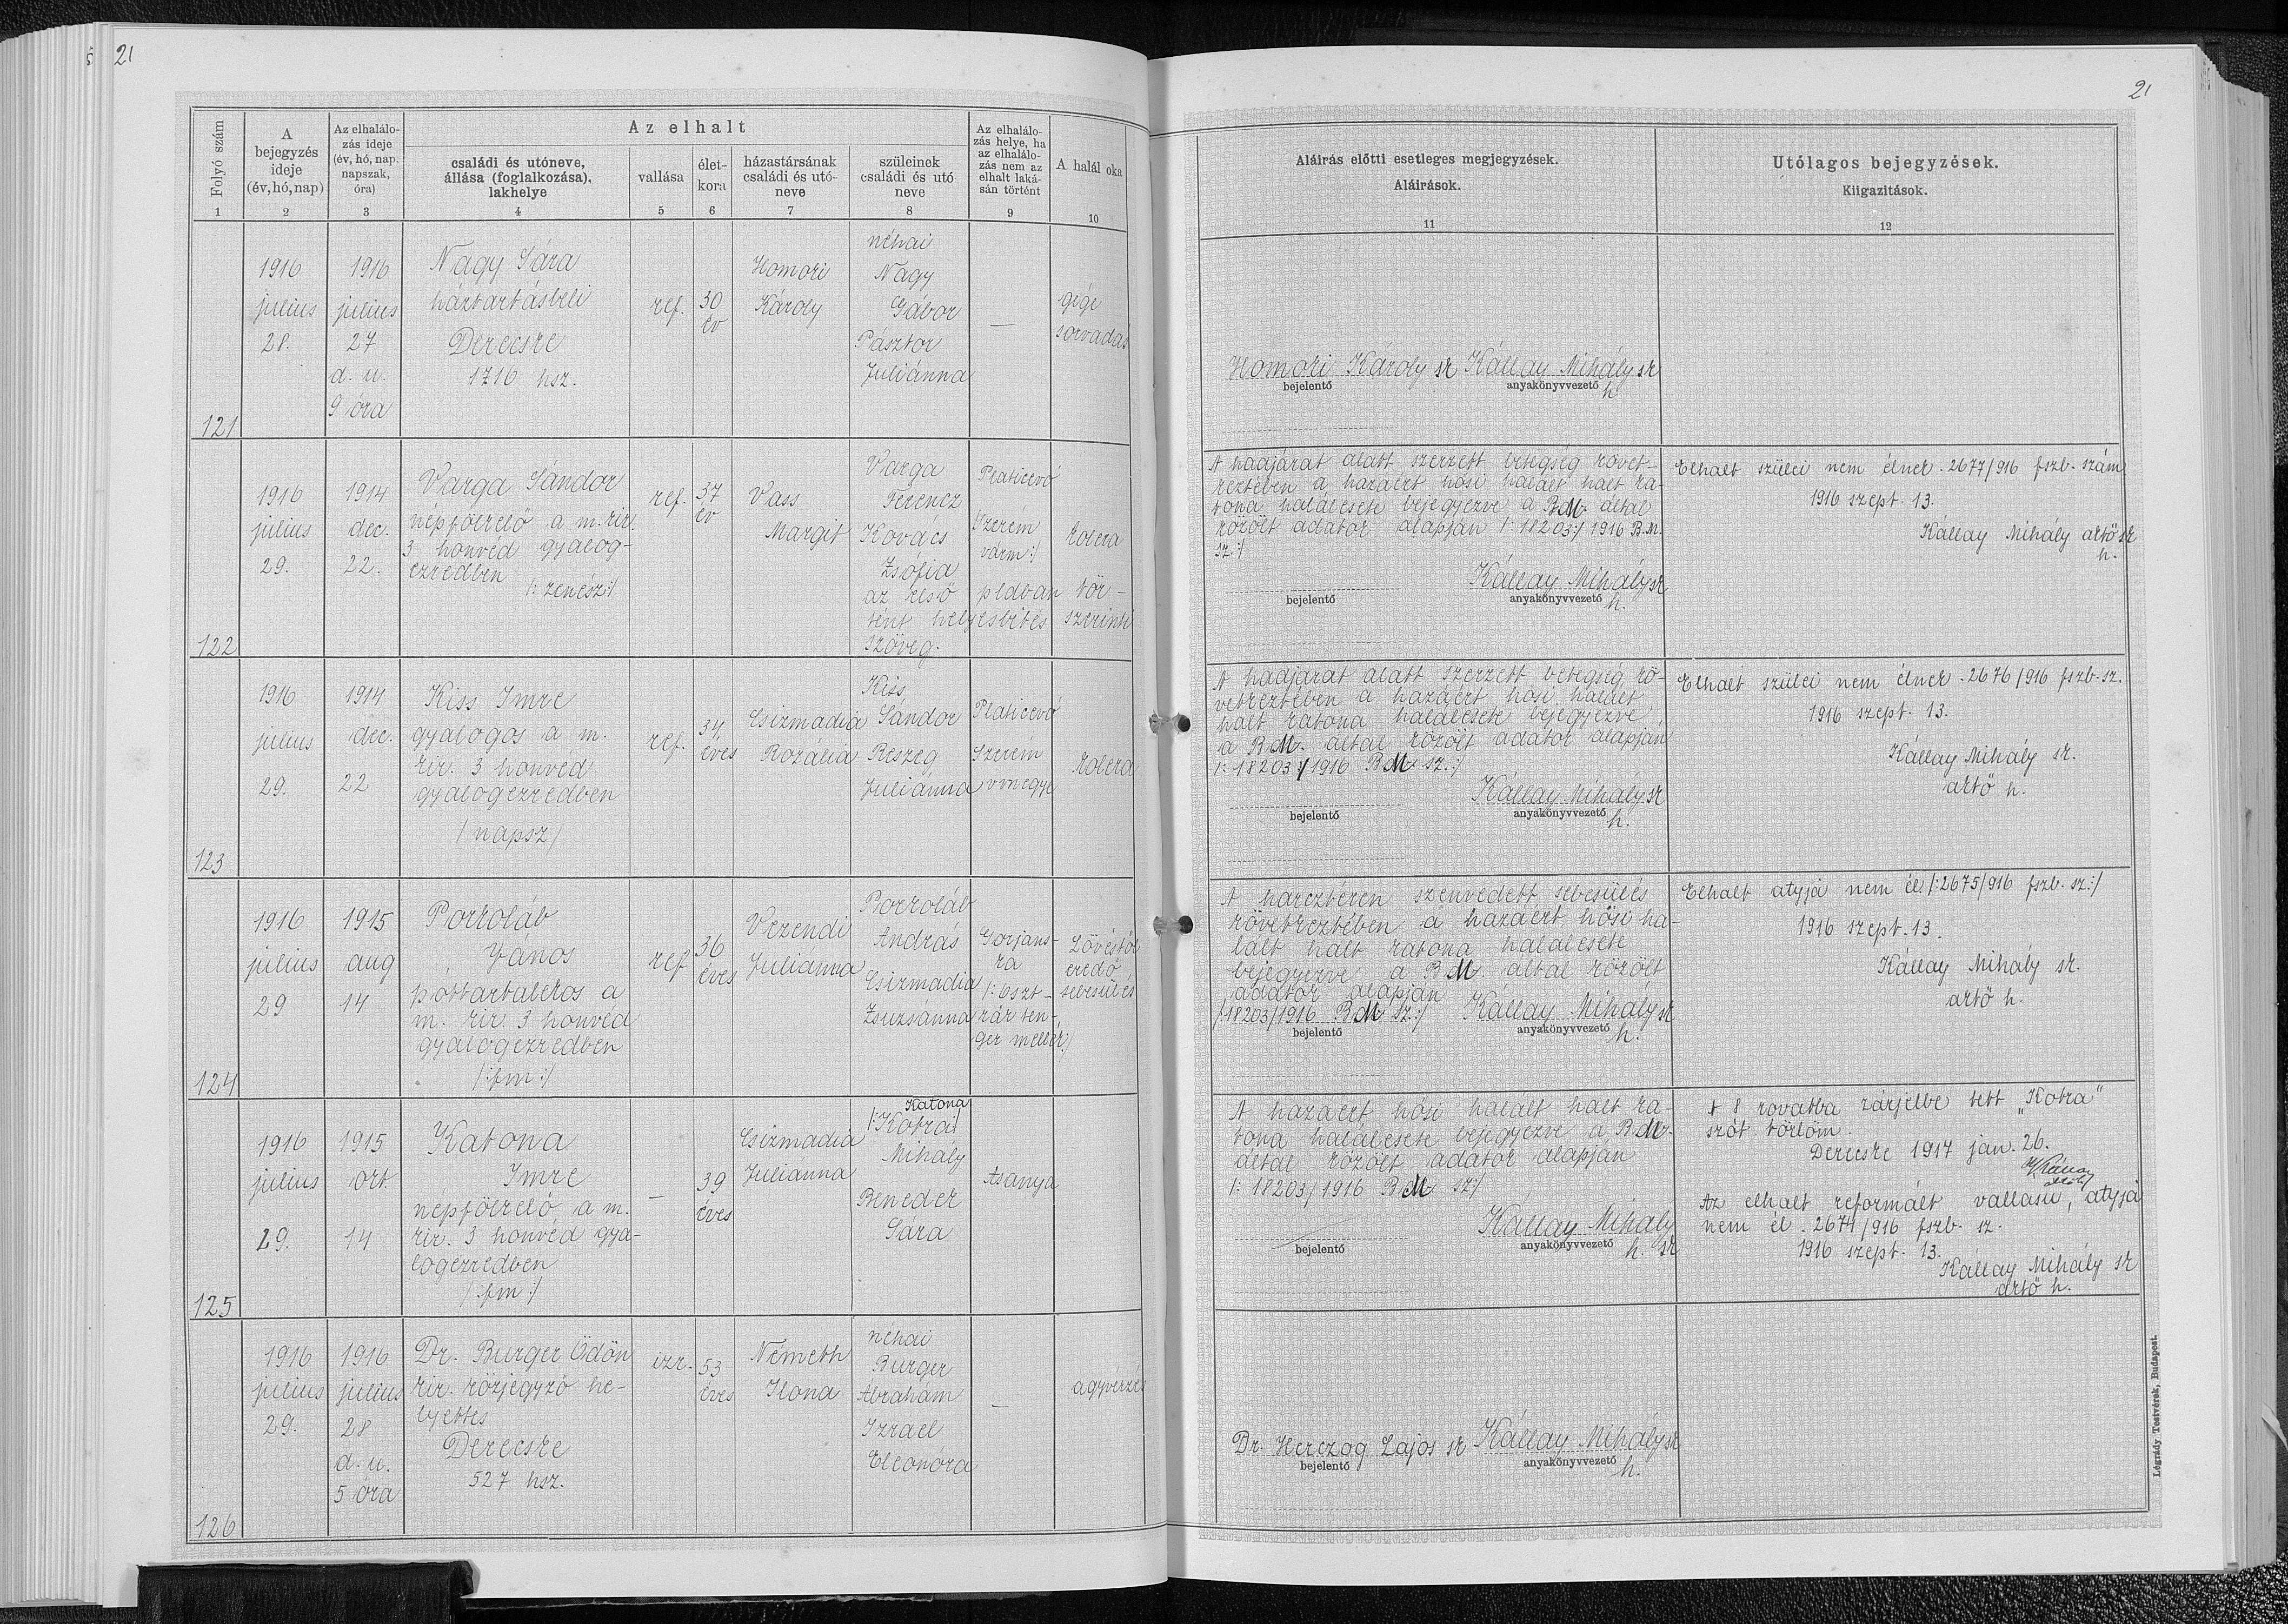 21
21
Folyó szám
1
A
bejegyzés
ideje
(év, hó, nap)
2
Az elhalálo-
zás ideje
(év, hó, nap,
napszak,
óra)
3
Az elhalt
családi és utóneve,
állása (foglalkozása),
lakhelye
4
vallása
5
élet-
kora
6
házastársának
családi és utó-
neve
7
szüleinek
családi és utó
neve
8
Az elhalálo-
zás helye, ha
az elhalálo-
zás nem az
elhalt laká-
sán történt
9
A halál oka
10
Aláírás előtti esetleges megjegyzések.
Aláírások.
11
Utólagos bejegyzések.
Kiigazítások.
12
121
1916
julius
28.
1916
julius
27
d. u.
9 óra
Nagy Sára
háztartásbeli
Derecske
1716 hsz.
ref.
30
év
Homoki
Károly
néhai
Nagy
Gábor
Pásztor
Juliánna
—
gége
sorvadás
Homoki Károly sk Kállay Mihály sk
bejelentő anyakönyvvezető
h
122
1916
julius
29.
1914
dec.
22.
Varga Sándor
népfölkelő a m. kir.
3 honvéd gyalog-
ezredben
/: zenész :/
ref.
37
év
Vass
Margit
Varga
Ferencz
Kovács
Zsófia
az első pldban tör-
tént helyesbítés szerinti
szöveg.
Platicevó
/Szerém
várm :/
kolera
A hadjárat alatt szerzett betegség követ-
keztében a hazáért hősi halált halt ka-
tona halálesete bejegyezve a B.M. által
közölt adatok alapján /: 18203 :/ 1916 B.M.
sz :/
Kállay Mihály sk
bejelentő anyakönyvvezető
h.
Elhalt szülei nem élnek. 2677/916 fszb. szám
1916 szept. 13.
Kállay Mihály aktő sk
h.
123
1916
julius
29.
1914
dec.
22
Kiss Imre
gyalogos a m.
kir. 3 honvéd
gyalogezredben
/ napsz /
ref.
34
éves
Csizmadia
Rozália
Kiss
Sándor
Reszeg
Juliánna
Platicevó
Szerém
vmegye
kolera
A hadjárat alatt szerzett betegség kö-
vetkeztében a hazáért hősi halált
halt katona halálesete bejegyezve
a B.M. által közölt adatok alapján
/: 18203 :/ 1916 B.M. sz. :/
Kállay Mihály sk
bejelentő anyakönyvvezető
h.
Elhalt szülei nem élnek. 2676/916 fszb. sz.
1916 szept. 13.
Kállay Mihály sk.
aktő h.
124
1916
julius
29
1915
aug
14
Porkoláb
János
póttartalékos a
m. kir. 3 honvéd
gyalogezredben
/: fm :/
ref
36
éves
Vezendi
Julianna
Porkoláb
András
Csizmadia
Zsuzsánna
Gorjans-
ka
/: oszt-
rák ten-
ger mellék/
Lövéstől
eredő
sebesülés
A harcztéren szenvedett sebesülés
következtében a hazáért hősi ha-
lált halt katona halálesete
bejegyezve a B.M. által közölt
adatok alapján
/: 18203/1916 B.M. sz :/ Kállay Mihály sk
bejelentő anyakönyvvezető
h.
Elhalt atyja nem él /: 2675/916 fszb. sz :/
1916 szept. 13.
Kállay Mihály sk.
aktő h.
125
1916
julius
29.
1915
okt
14
Katona
Imre
népfölkelő a m.
kir. 3 honvéd gya-
logezredben
/ fm :/
—
39
éves
Csizmadia
Julianna
Katona
/: Kotra :/
Mihály
Benedek
Sára
Asanya
A hazáért hősi halált halt ka-
tona halálesete bejegyezve a B.M.
által közölt adatok alapján
/: 18203/1916 B.M. sz :/
Kállay Mihály
bejelentő anyakönyvvezető
h. sk
A 8 rovatba zárjelbe tett „Kotra"
szót törlöm.
Derecske 1917 jan. 26.
Az elhalt református vallású, atyja
nem él. 2674/916 fszb. sz.
1916 szept. 13.
Kállay Mihály sk
aktő h.
126
1916
julius
29.
1916
julius
28
d. u.
5 óra
Dr. Burger Ödön
kir. közjegyző he-
lyettes
Derecske
527 hsz.
izr.
53
éves
Németh
Ilona
néhai
Burger
Ábrahám
Izrael
Eleonóra
—
agyvérzés
Dr. Herczog Lajos sk Kállay Mihály sk
bejelentő anyakönyvvezető
h.
Légrády Testvérek, Budapest.